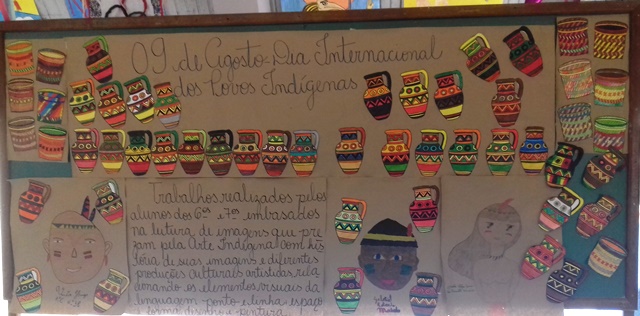 09 de Agosto-Dia Internacional
dos Povos Indígenas
Trabalhos realizados pelos
alunos dos 6ºs e 7ºs embasados
na leitura de imagens que pre
zam pela Arte Indígena com his
tória de suas imagens e diferentes
produções culturais artísticas rela
cionando os elementos visuais da
linguagem ponto e linha espaço
forma desenho e pintura.